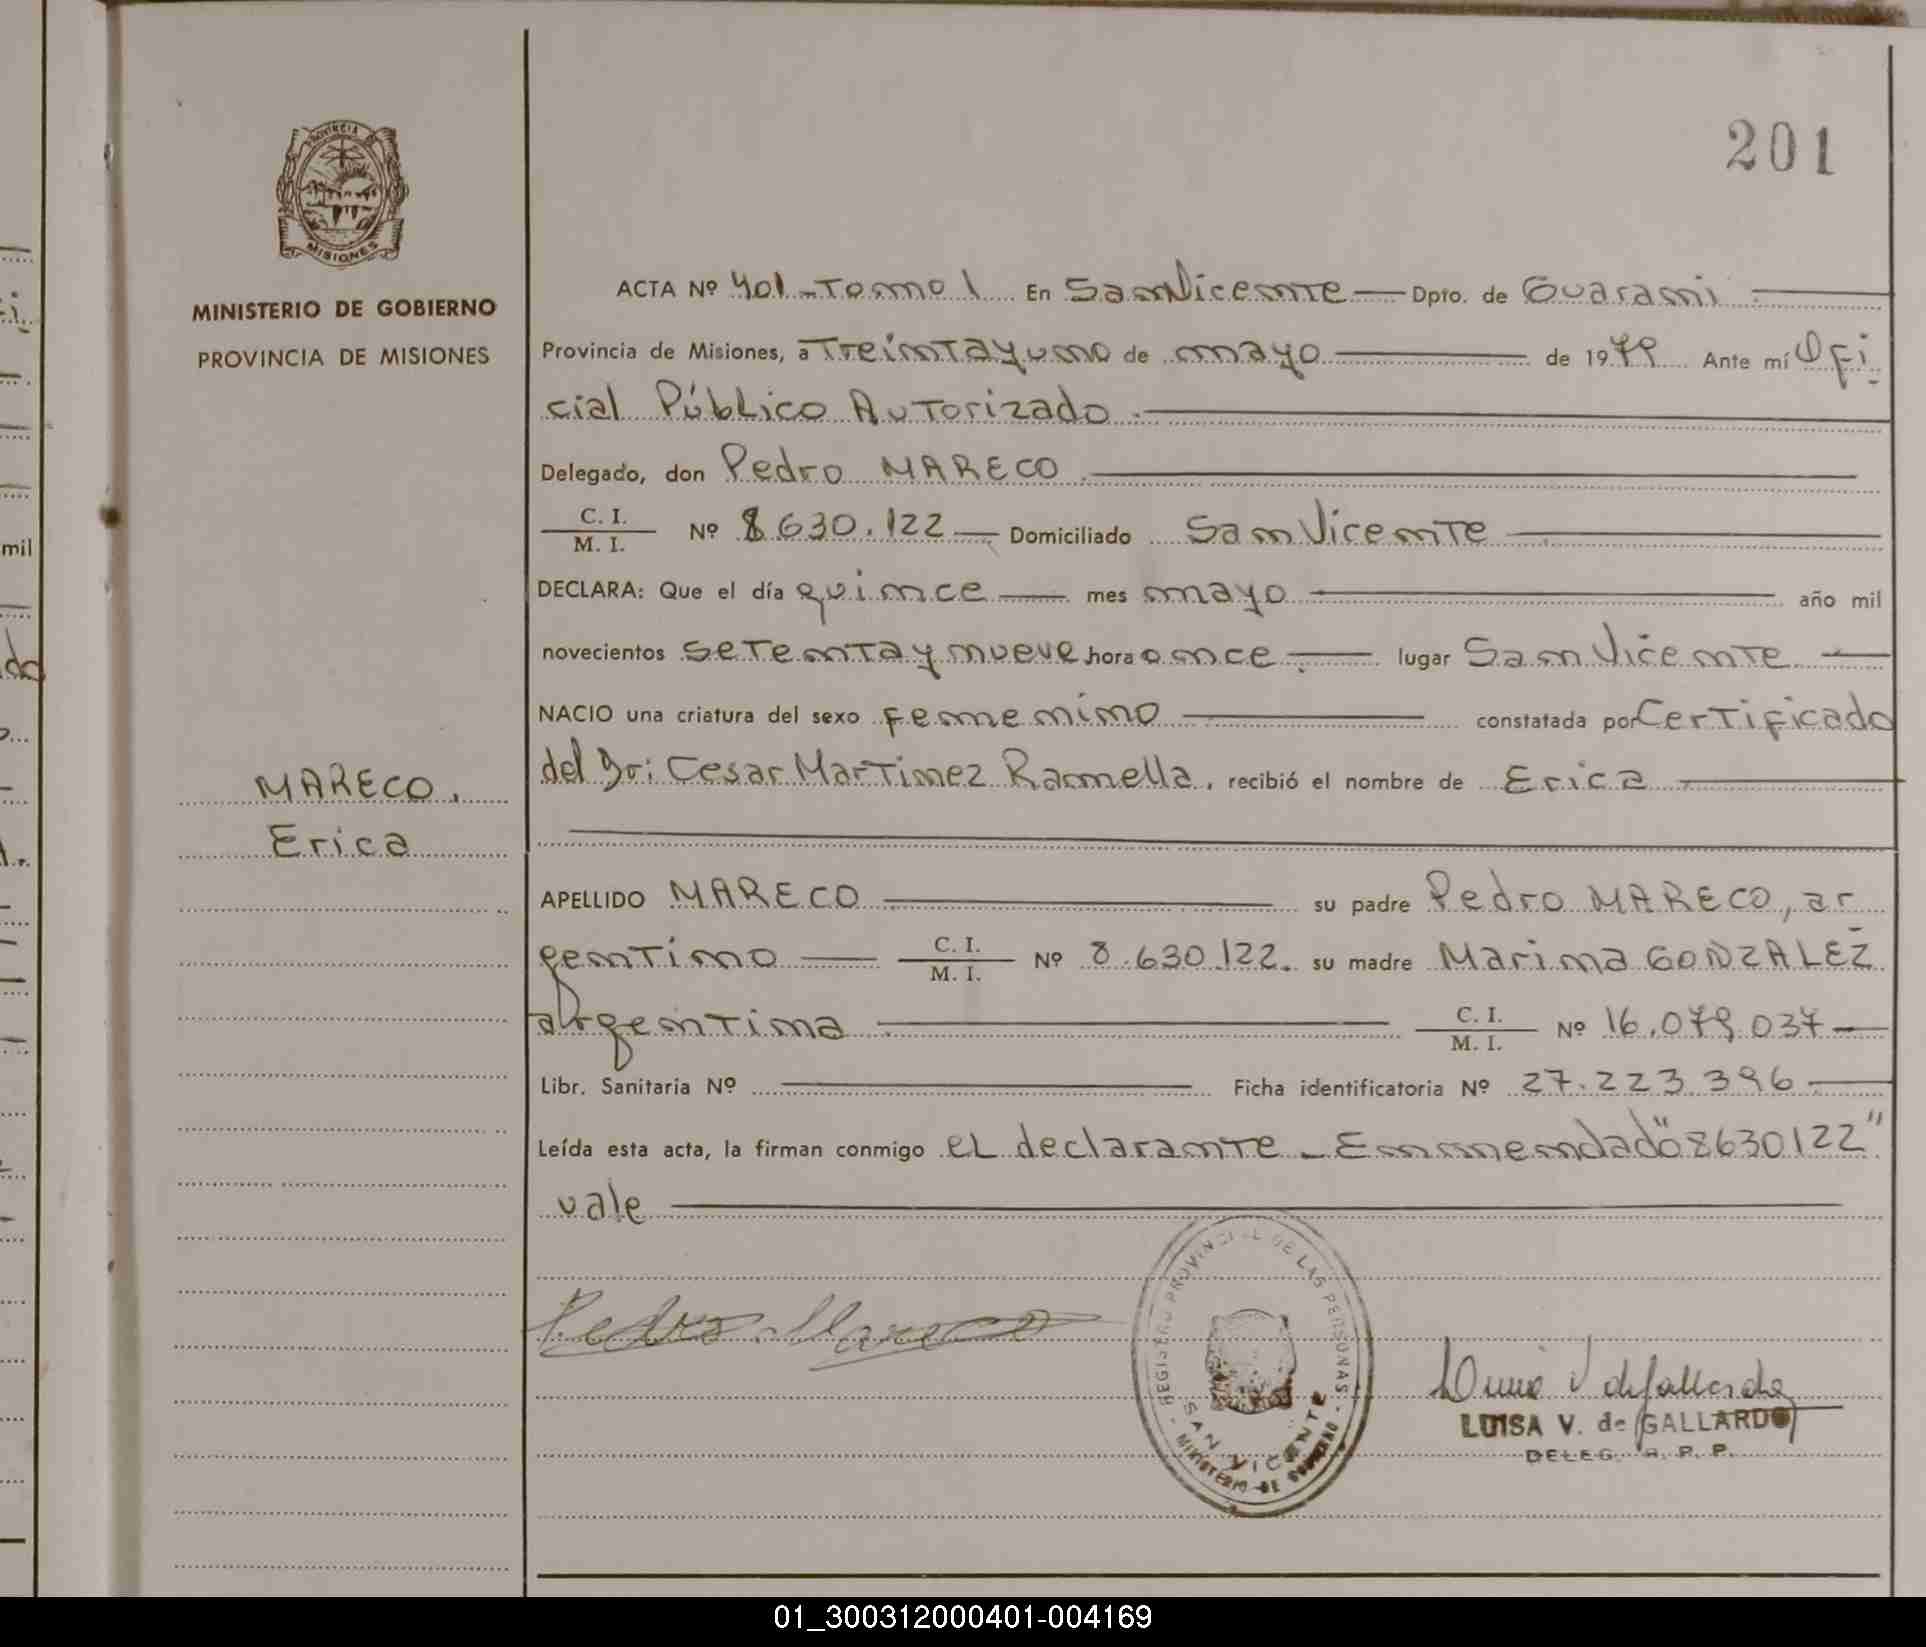 201
PROVINCIA
MISIONES
MINISTERIO DE GOBIERNO
PROVINCIA DE MISIONES
ACTA Nº 401-Tomo 1 En San Vicente Dpto. de Guarani
Provincia de Misiones, a Treinta y uno de mayo de 1979 Ante mí Ofi
cial Público Autorizado
Delegado, don Pedro MARECO
C. I.
M. I. Nº 8630.122 Domiciliado San Vicente
DECLARA: Que el día quince mes mayo año mil
novecientos setenta y nueve hora once lugar San Vicente
NACIO una criatura del sexo femenino constatada por Certificado
del Dr: Cesar Martinez Ramella, recibió el nombre de Erica
MARECO,
Erica
APELLIDO MARECO su padre Pedro MARECO, ar
gentino C. I. M. I. Nº 8.630.122. su madre Marina GONZALEZ
argentina C. I. M. I. Nº 16.079.037
Libr. Sanitaria Nº Ficha identificatoria Nº 27.223.396
Leída esta acta, la firman conmigo el declarante - Enmendado "8630122"
vale
Pedro Mareco
REGISTRO PROVINCIAL DE LAS PERSONAS
SAN VICENTE
MINISTERIO DE GOBIERNO
LUISA V. de GALLARDO
DELEG. R. P. P.
mil
01_300312000401-004169